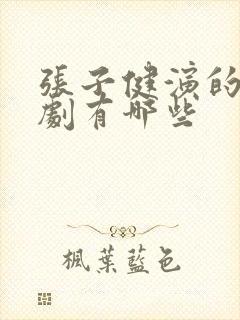 張子健演的
劇有哪些
楓葉藍色